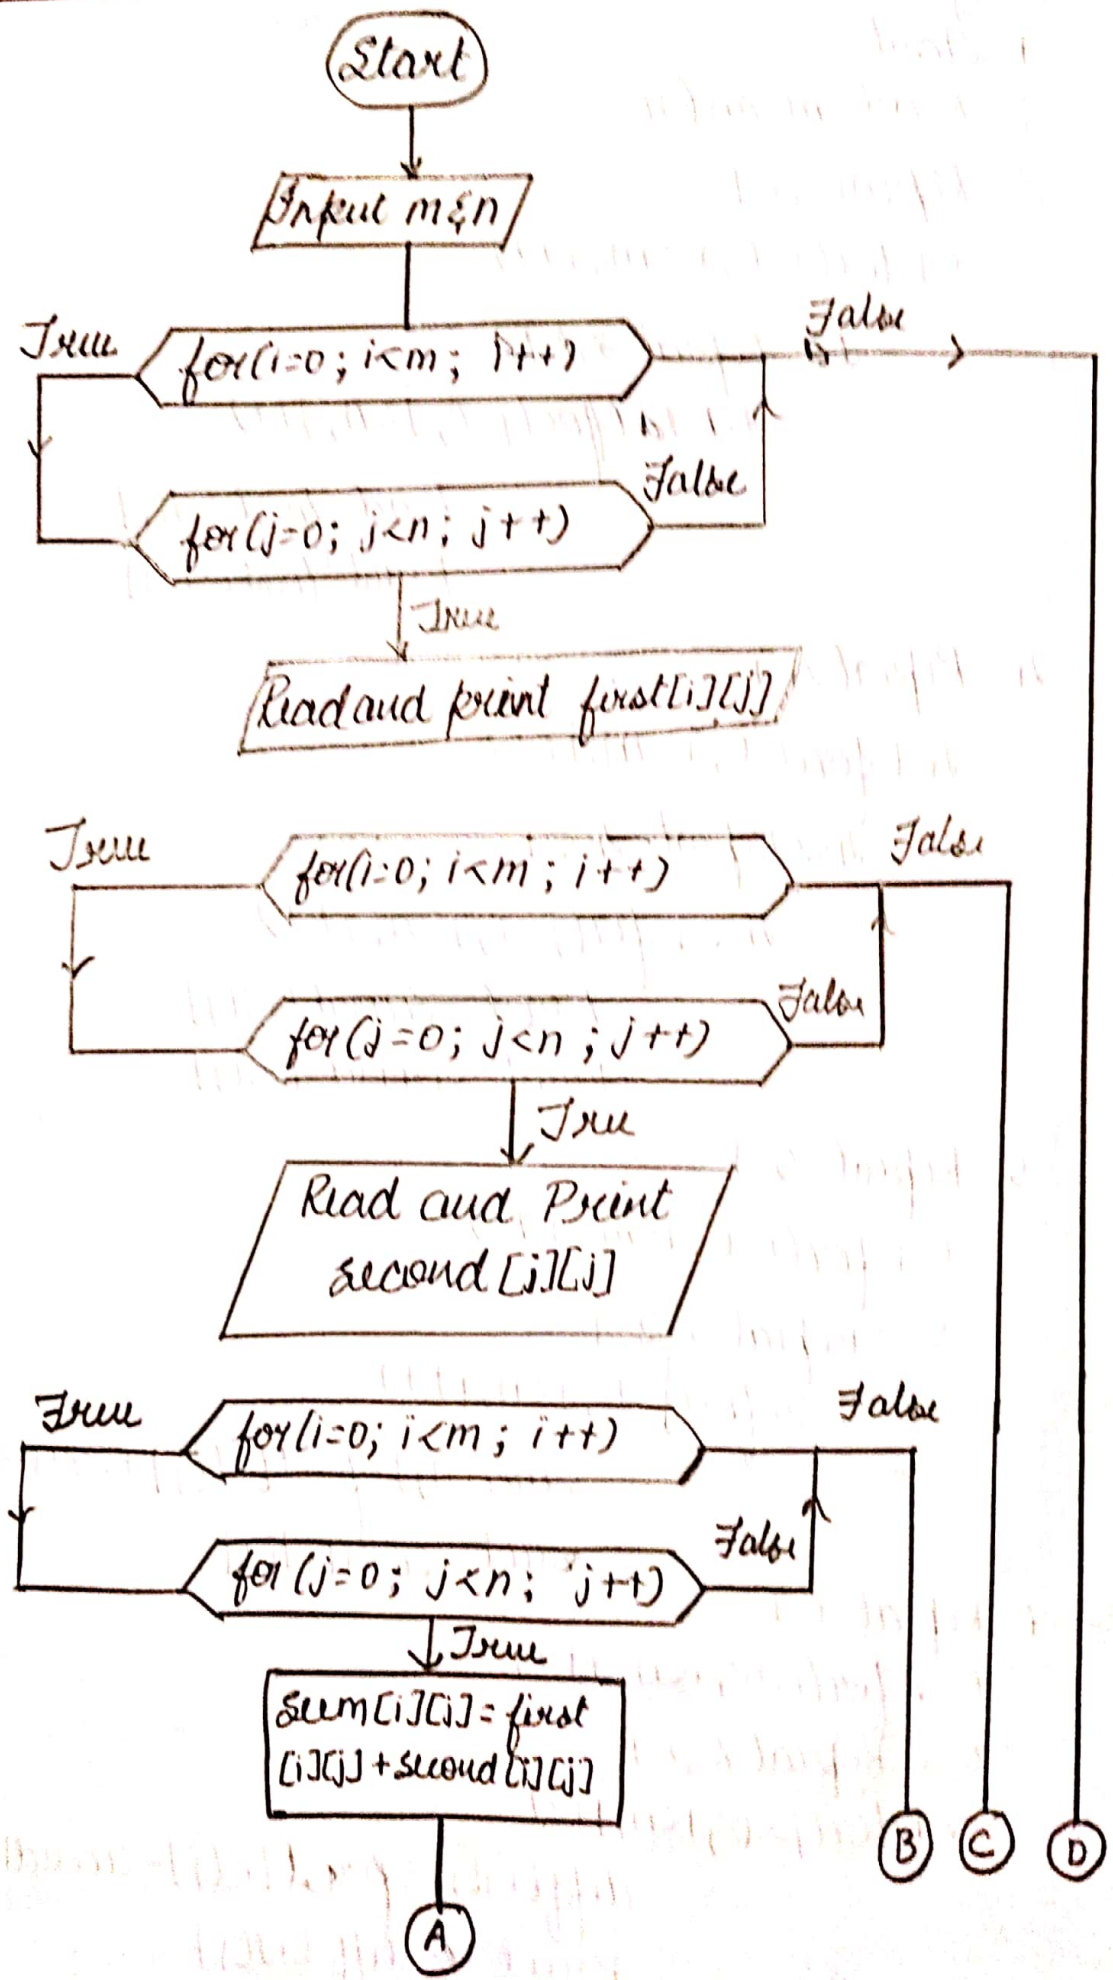 Start
Input m&n
True
for(i=0; i<m; i++)
False
for(j=0; j<n; j++)
False
True
Read and print first[i][j]
True
for(i=0; i<m; i++)
False
for(j=0; j<n; j++)
False
True
Read and Print
second[j][j]
True
for(i=0; i<m; i++)
False
for(j=0; j<n; j++)
False
True
Sum[i][j]=first
[i][j]+second[i][j]
B
C
D
A